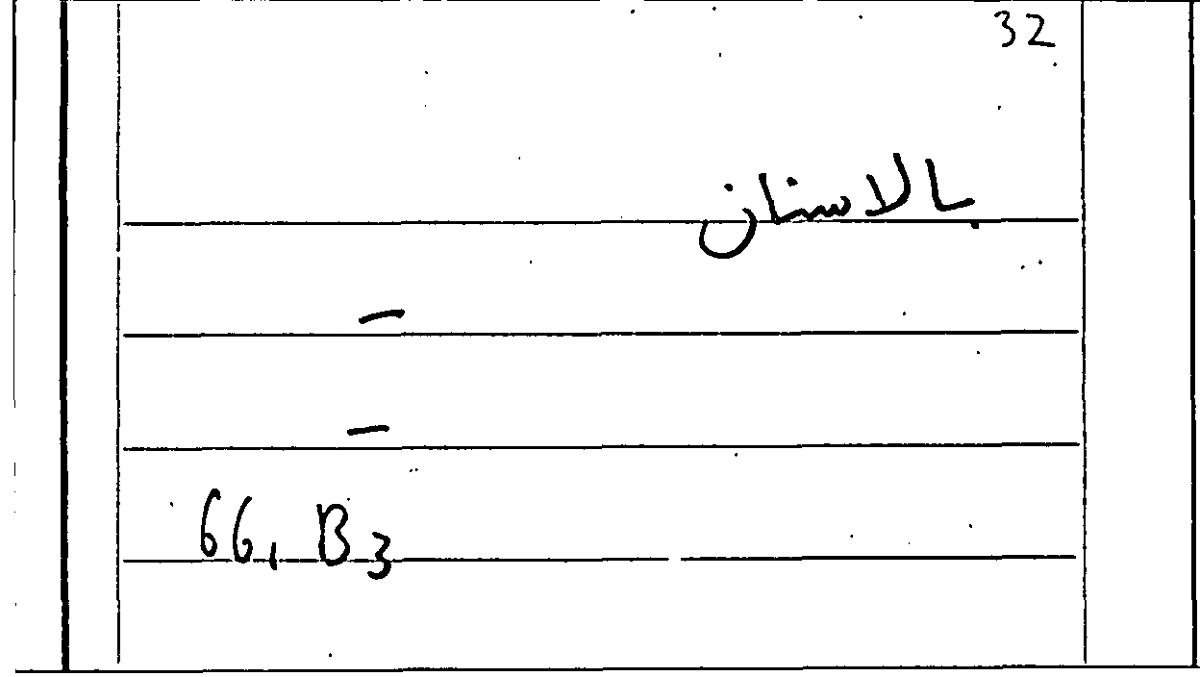 32
بالاستان
–
–
66, B3